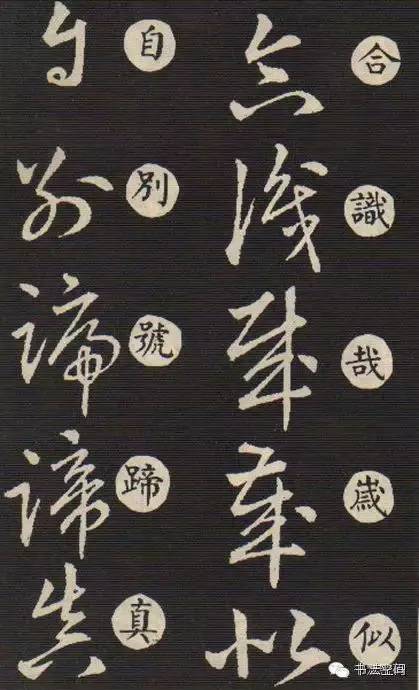 合識哉歲似
自別號蹄真
书法密码